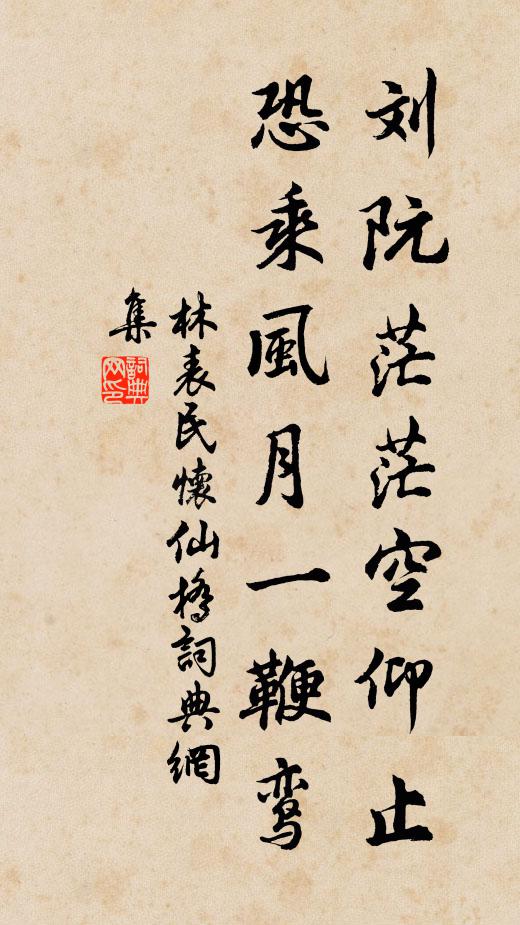 刘阮茫茫空仰止
恐乘風月一鞭鸾
林表民懷仙橋詞典網
集
詞典网印